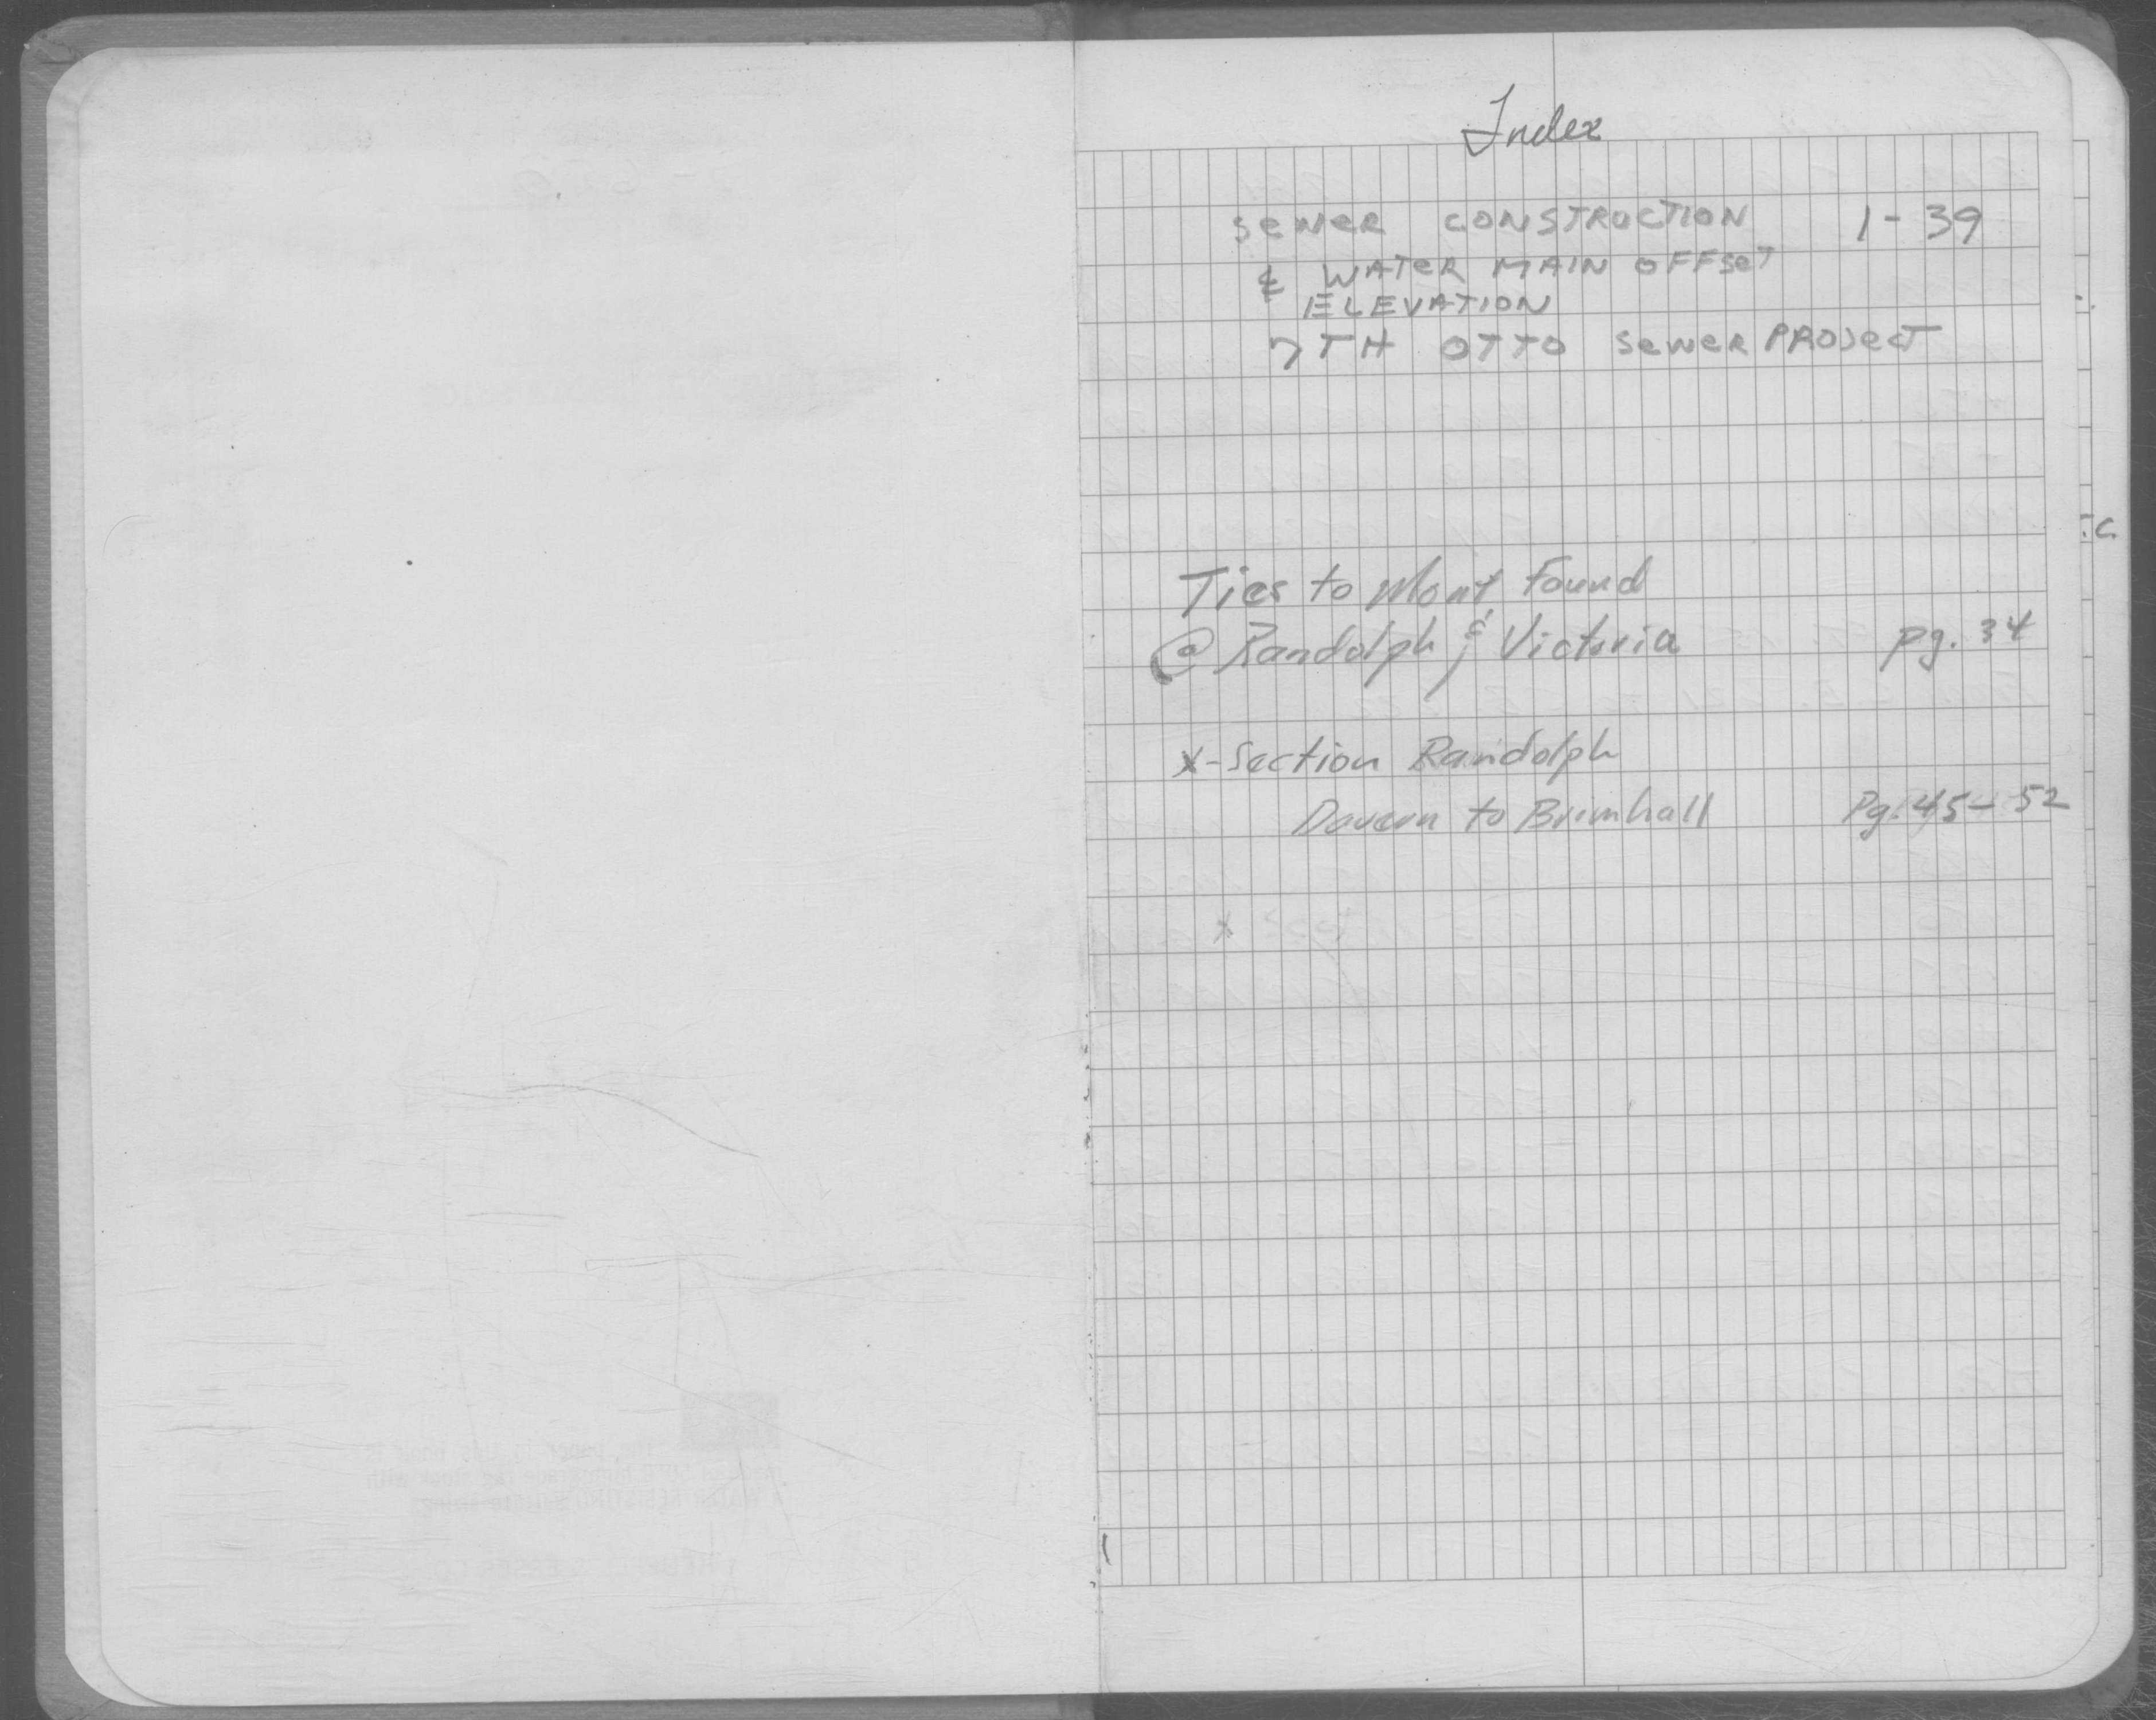 Index
SEWER CONSTRUCTION 1-39
& WATER MAIN OFFSET
ELEVATION
7TH OTTO SEWER PROJECT
Ties to Mon't Found
@ Randolph & Victoria pg. 34
X-Section Randolph
Davern to Brimhall Pg. 45-52
X Sect